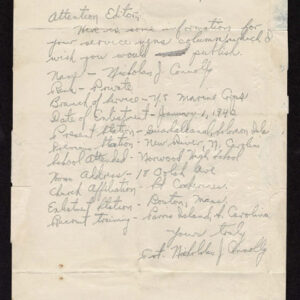 Attention Editor:
Here is some information for
your service mens column which I
wish you would publish
Name - Nicholas J Connolly
Rank - Private
Branch of Service - U.S Marine Corps
Date of Enlistment - January 1, 1942
Present Station - Guadalcanal, Solomon Isls
Previous Station - New River, N. Carolina
School Attended - Norwood High School
Home Address - 18 Walsh Ave
Church Affiliation - St Catherines
Enlistment Station - Boston, Mass
Recruit training - Parris Island, S. Carolina
Yours truly
Pvt. Nicholas J Connolly